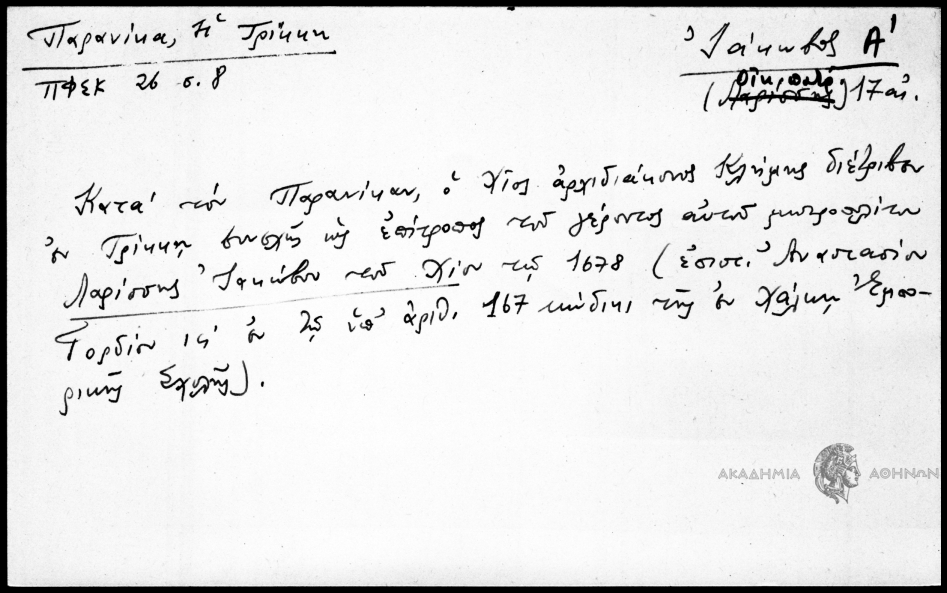 Παρανίκα, Ἡ Τρίκκη
ΠΦΣΚ 26 σ. 8
Ἰάκωβος Α'
Οἰκ. πατρ.
(Λαρίσσης) 17 αἰ.
Κατά τόν Παρανίκαν, ὁ Χῖος ἀρχιδιάκονος Κλήμης διέτριβεν
ἐν Τρίκκῃ συνεχῶς ὡς ἐπίτροπος τοῦ γέροντος αὐτοῦ μητροπολίτου
Λαρίσσης Ἰακώβου τοῦ Χίου τῷ 1678 (ἐπιστ. Ἀναστασίου
Γορδίου ις' ἐν τῷ ὑπ' ἀριθ. 167 κώδικι τῆς ἐν Χάλκῃ Ἐμπο-
ρικῆς Σχολῆς).
ΑΚΑΔΗΜΙΑ ΑΘΗΝΩΝ